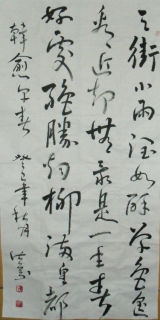 天街小雨润如酥草色遥
看近却无最是一年春
好处绝胜烟柳满皇都
韩愈早春 癸巳年秋月